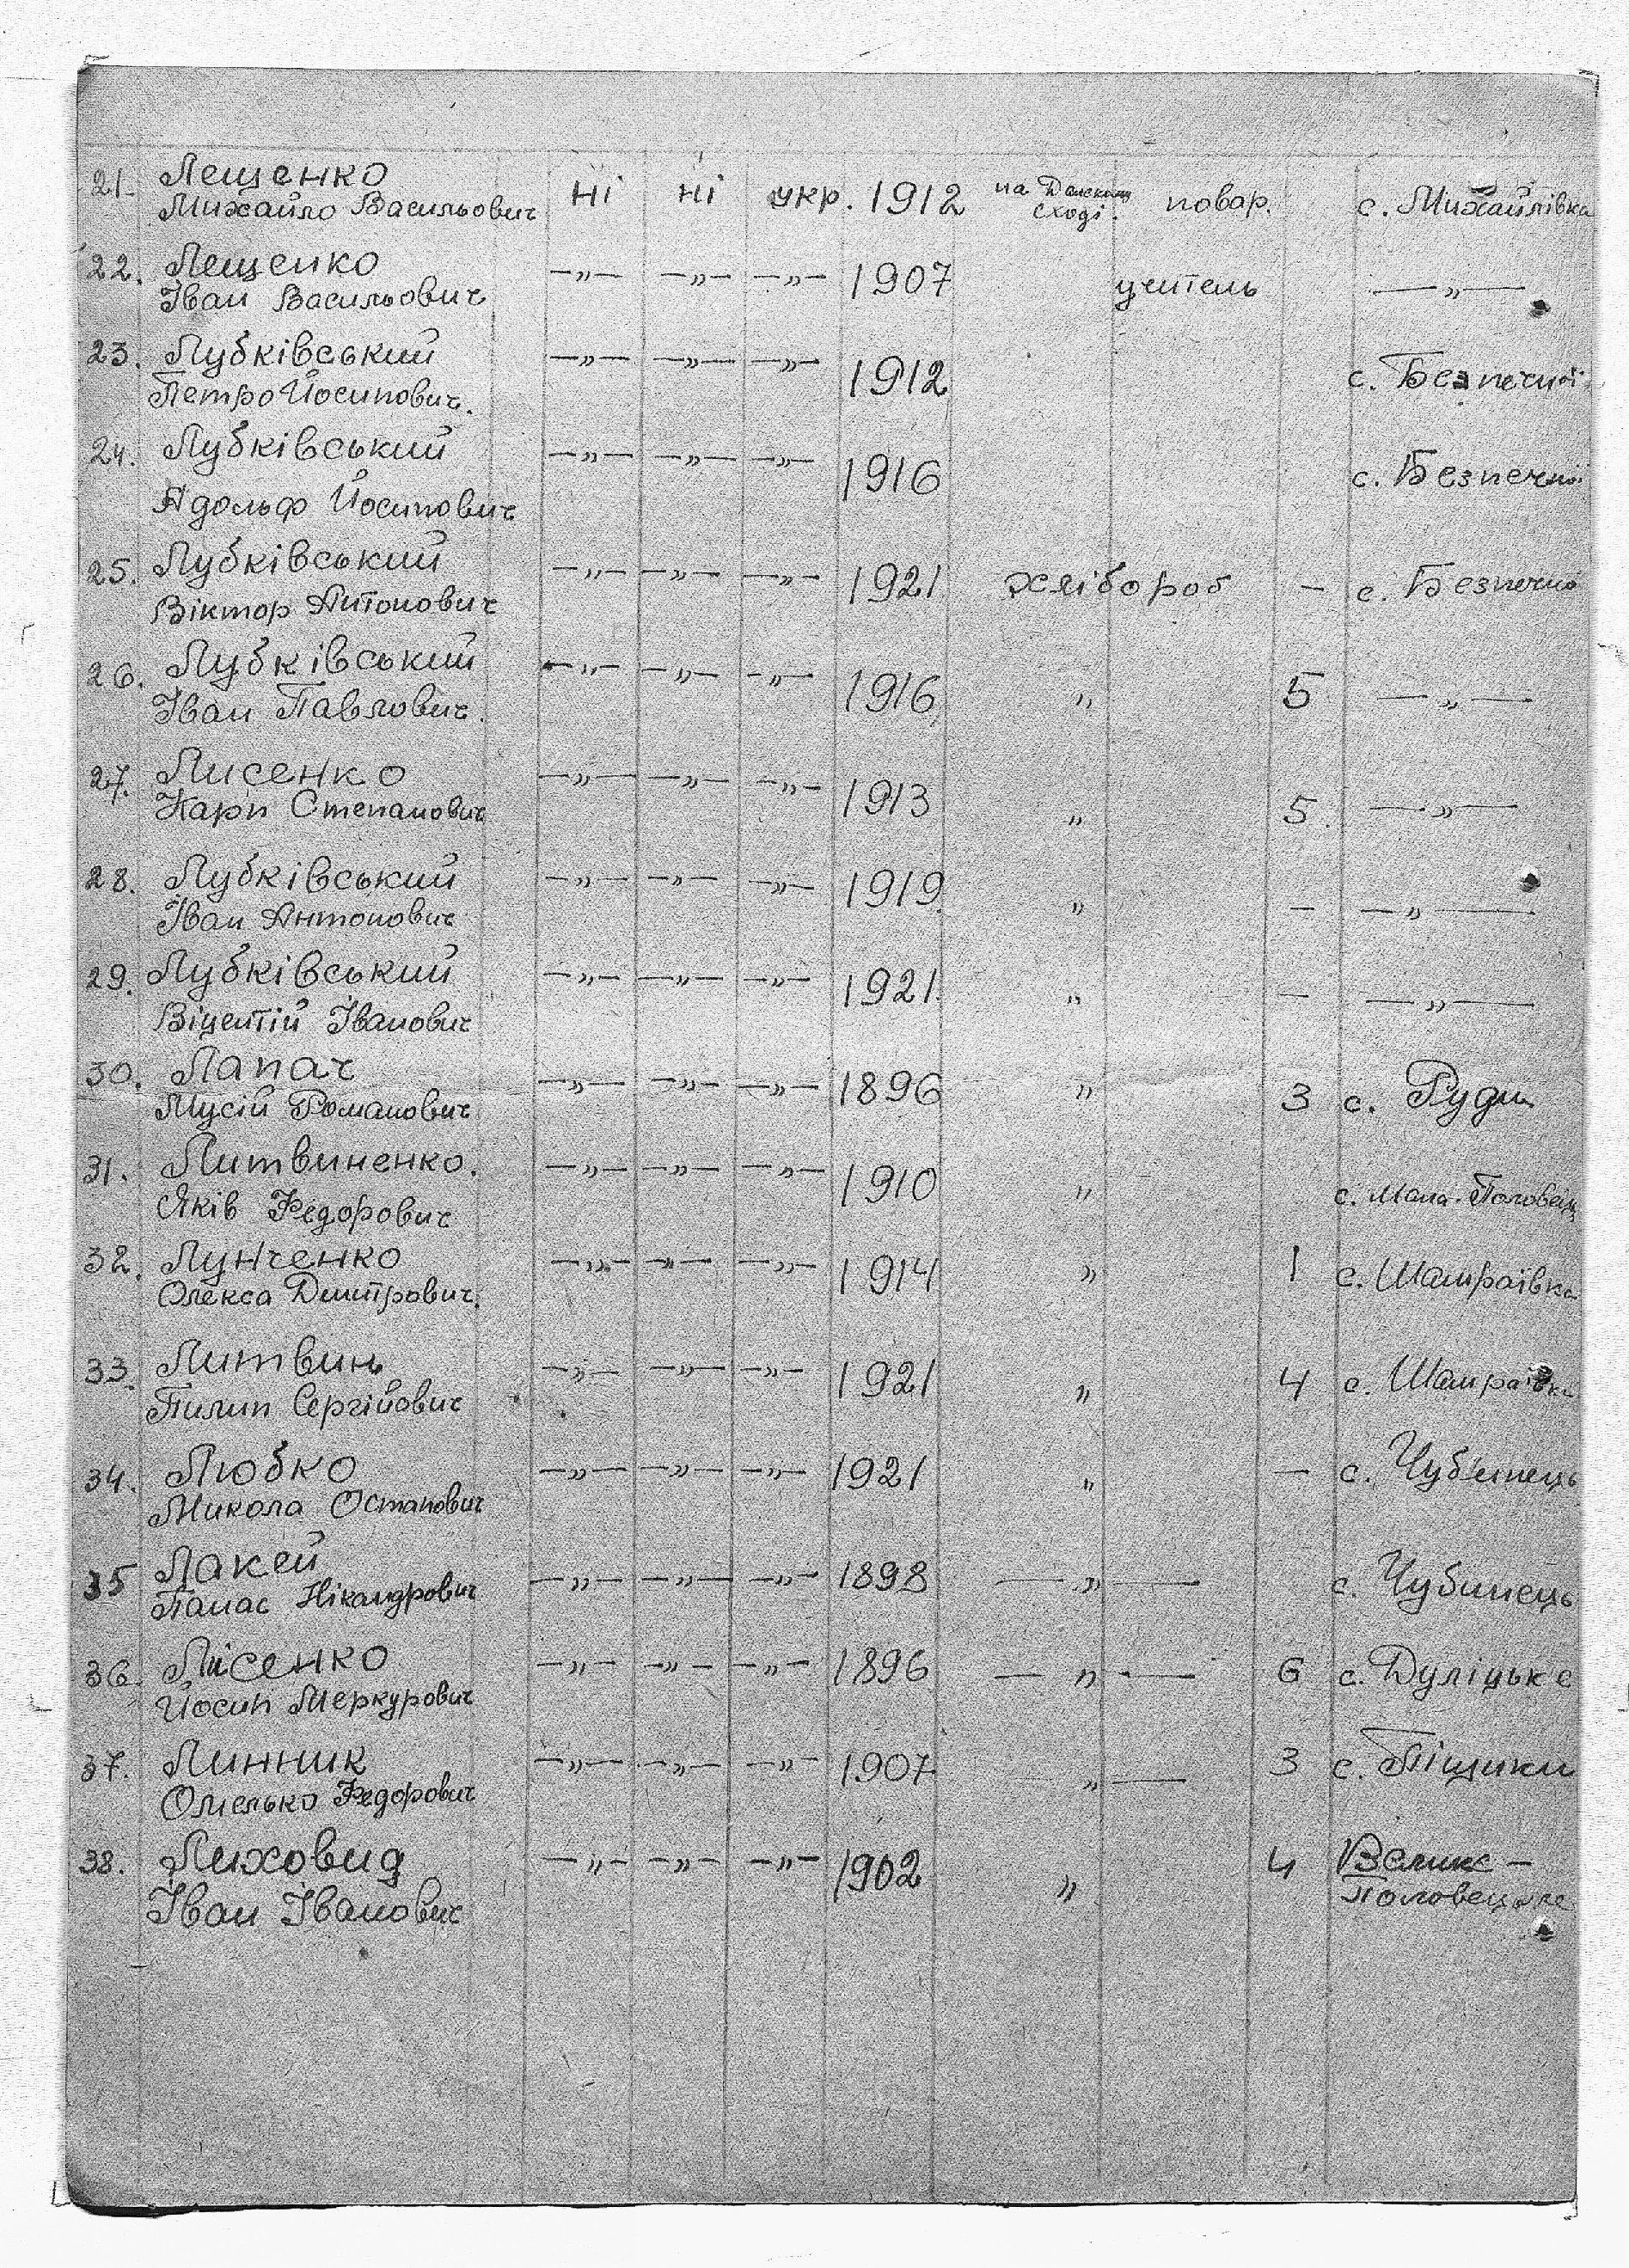 21. Лещенко ні ні укр. 1912 на Далеком повар. с. Михайлівка
Михайло Васильович сході.
22. Лещенко —„— —„— —„— 1907 учитель —„—
Іван Васильович
23. Лубківський —„— —„— —„— 1912 с. Безпечної
Петро Йосипович.
24. Лубківський —„— —„— —„— 1916 с. Безпечної
Адольф Йосипович
25. Лубківський —„— —„— —„— 1921 хлібороб — с. Безпечна
Віктор Антонович
26. Лубківський —„— —„— —„— 1916 „ 5 —„—
Іван Павлович.
27. Лисенко —„— —„— —„— 1913 „ 5. —„—
Карп Степанович
28. Лубківський —„— —„— —„— 1919 „ — —„—
Іван Антонович
29. Лубківський —„— —„— —„— 1921. „ — —„—
Віцентій Іванович
30. Лапач —„— —„— —„— 1896 „ 3 с. Руди
Мусій Романович
31. Литвиненко. —„— —„— —„— 1910 „ с. Мала-Половець
Яків Федорович
32. Лунченко —„— —„— —„— 1914 „ 1 с. Шамраївка
Олекса Дмитрович.
33. Литвинь —„— —„— —„— 1921 „ 4 с. Шамраївка
Пилип Сергійович
34. Любко —„— —„— —„— 1921 „ — с. Чубинець
Микола Остапович
35 Лакей —„— —„— —„— 1898 —„— с. Чубинець
Панас Нікандрович
36. Лисенко —„— —„— —„— 1896 —„— 6 с. Дуліцьке
Йосип Меркурович
37. Линник —„— —„— —„— 1907 „— 3 с. Піщики
Омелько Федорович
38. Лиховид —„— —„— —„— 1902 „ 4 Велике-
Іван Іванович Половецьке